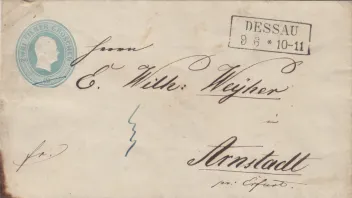 DESSAU
9 6 * 10-11
Herrn
E. Wilh: Weyher
in
Arnstadt
pr: Erfurt.
fr.